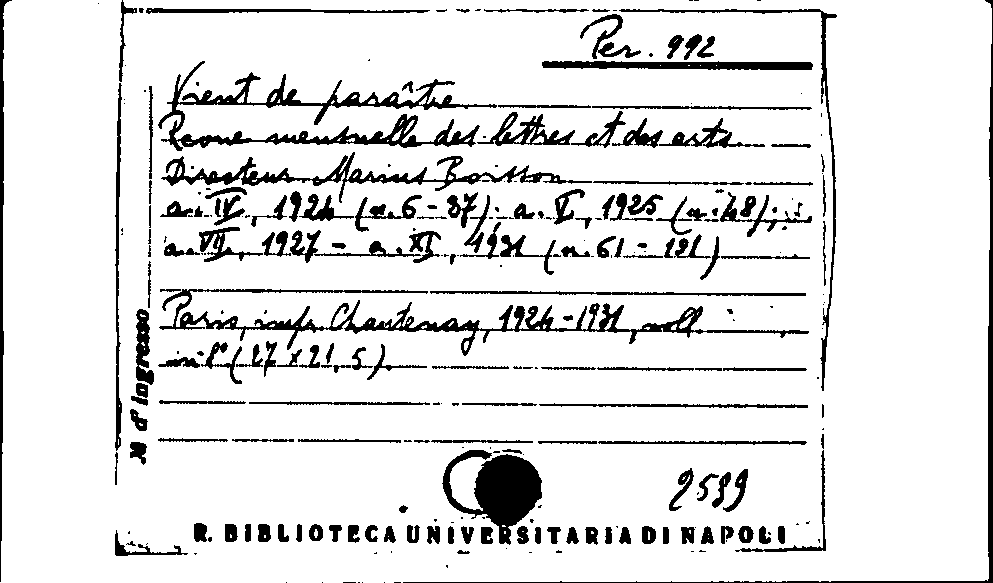 Per. 992
Vient de paraître.
Revue mensuelle des lettres et des arts.
Directeur Marius Boisson
a. IV, 1924 (n. 6-37). a. V, 1925 (n. 48);
a. VII, 1927 - a. XI, 1931 (n. 61 - 121)
Paris, impr. Chantenay, 1924-1931, voll.
in 8° (27 x 21, 5).
N° d'Ingresso
2599
R. BIBLIOTECA UNIVERSITARIA DI NAPOLI